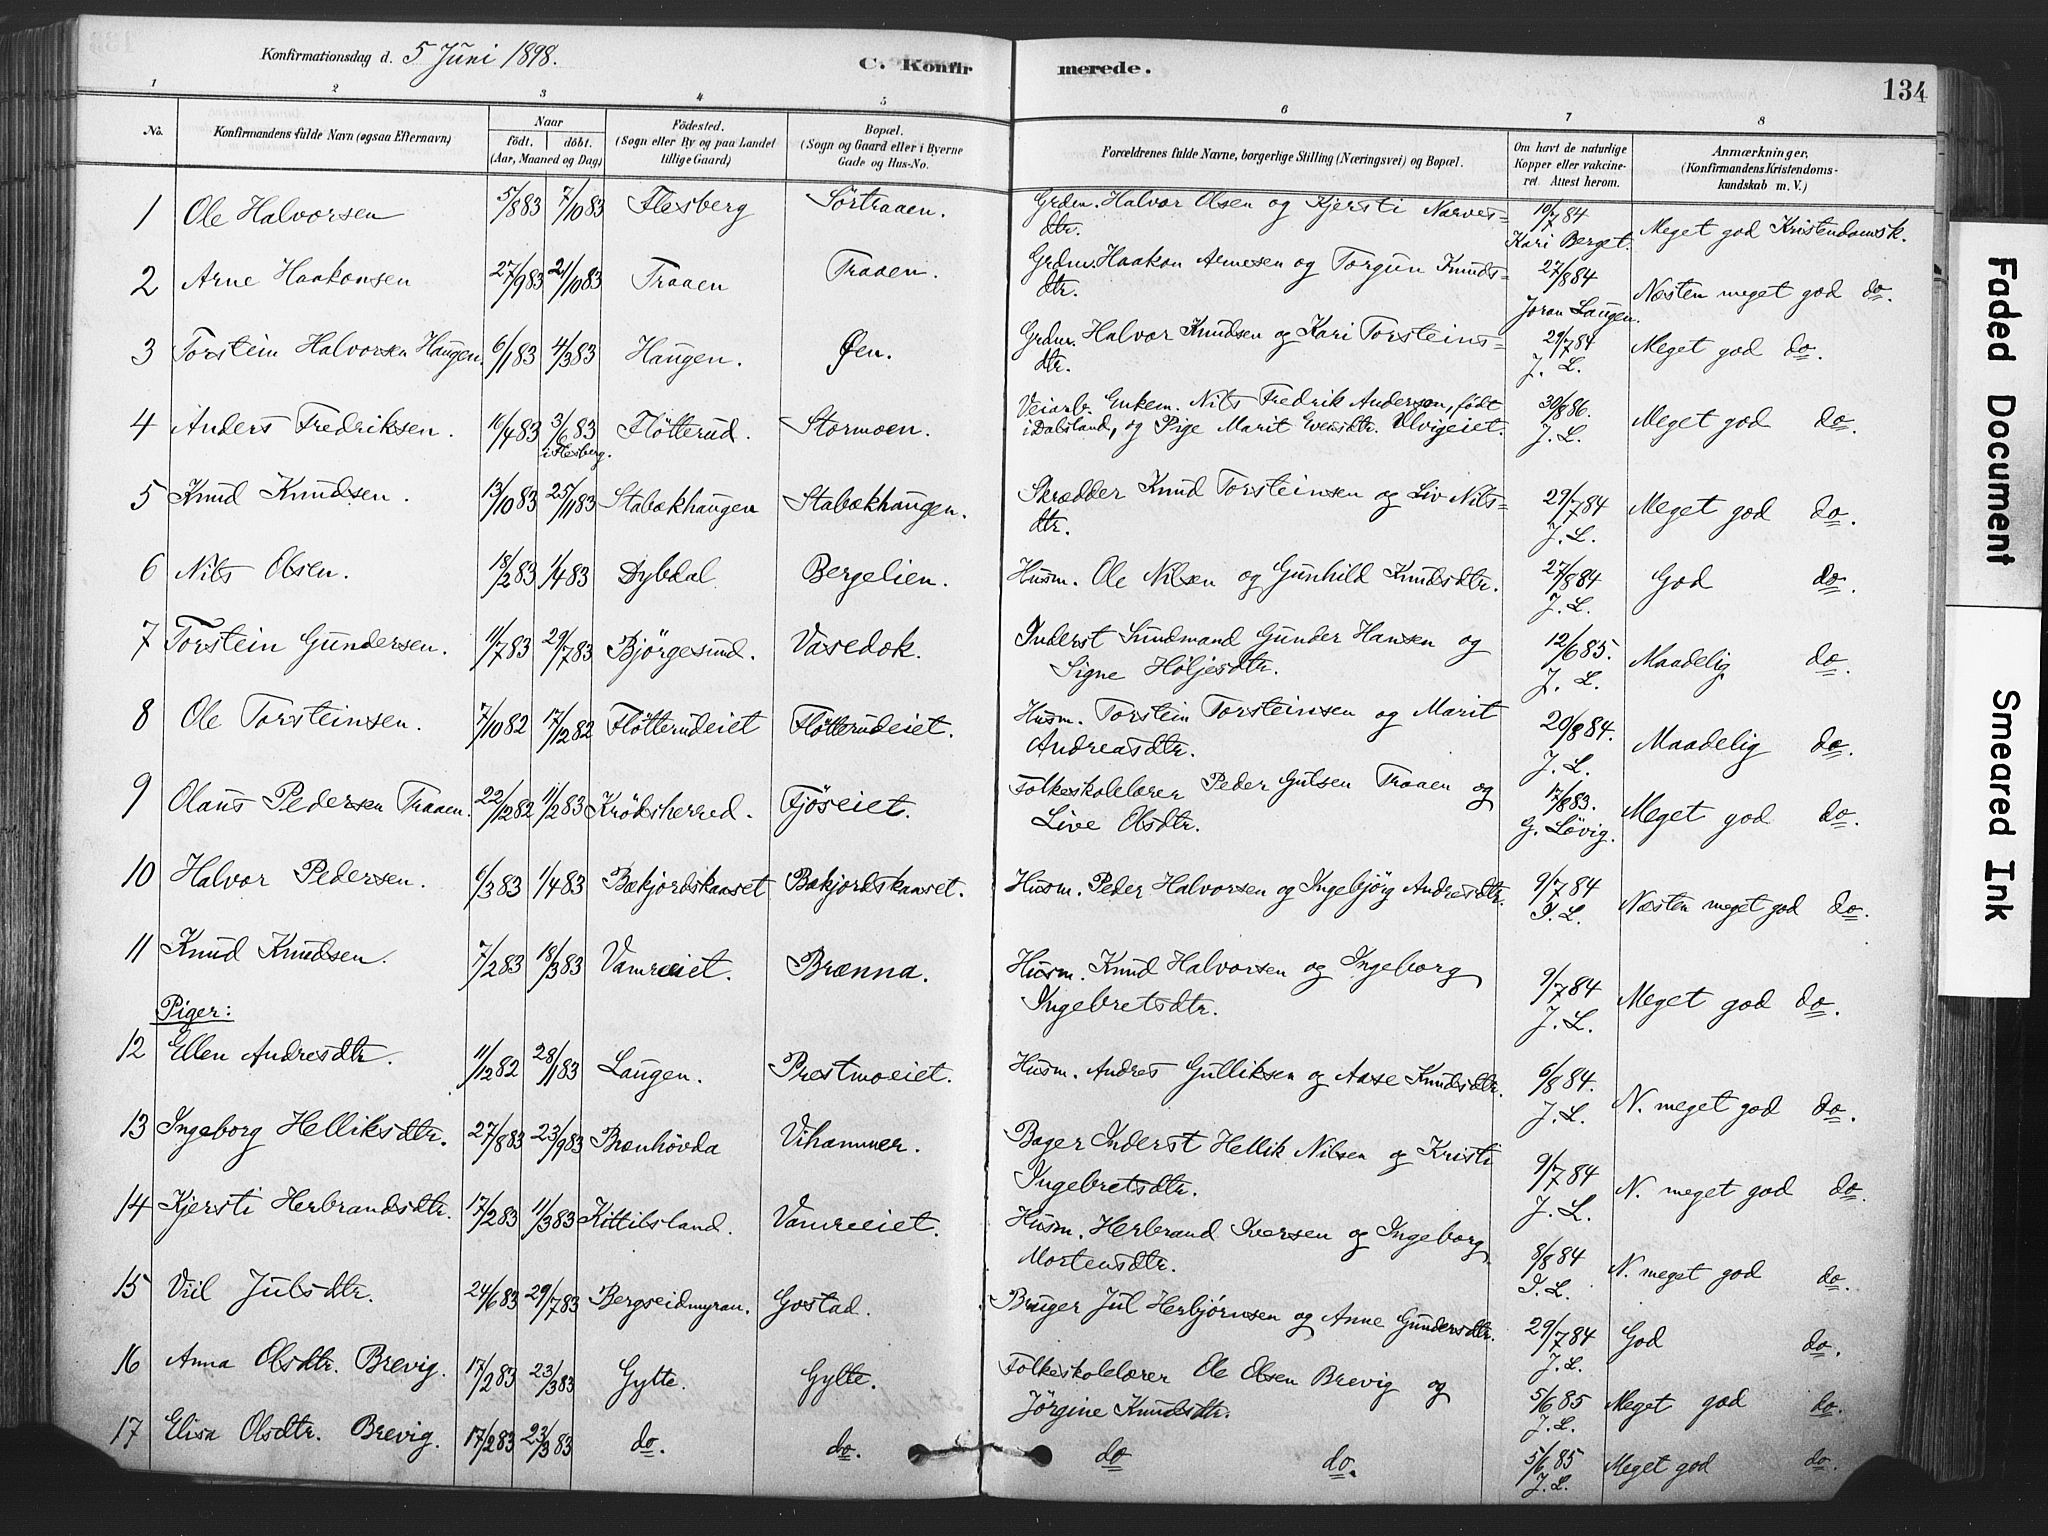 Konfirmationsdag d. 5 Juni 1898.
C. Konfirmerede.
134
1 2 3 4 5 6 7 8
No.
Konfirmandens fulde Navn (ogsaa Efternavn)
Naar
født. døbt.
(Aar, Maaned og Dag)
Fødested.
(Sogn eller By og paa Landet
tillige Gaard)
Bopæl.
(Sogn og Gaard eller i Byerne
Gade og Hus-No.
Forældrenes fulde Navne, borgerlige Stilling (Næringsvei) og Bopæl.
Om havt de naturlige
Kopper eller vakcine-
ret. Attest herom.
Anmærkninger,
(Konfirmandens Kristendoms-
kundskab m. V.)
1 Ole Halvorsen 5/8 83 7/10 83 Flesberg Sörtraaen. Grdm. Halvor Olsen og Kjersti Narves=
dtr. 10/7 84 Kari Berget. Meget god Kristendomsk.
2 Arne Haakonsen 27/9 83 21/10 83 Traaen Traaen. Grdm. Haakon Arnesen og Torgun Knuds=
dtr. 27/8 84 Joran Laugen. Næsten meget god do.
3 Torstein Halvorsen Haugen. 6/1 83 4/3 83 Haugen. Øen. Grdm. Halvor Knudsen og Kari Torsteins=
dtr. 29/7 84 J. L. Meget god do.
4 Anders Fredriksen. 16/4 83 3/6 83 i Flesberg. Flötterud. Stormoen. Veiarb. Enkem. Nils Fredrik Andersen, født
i Dalsland, og Pige Marit Evensdtr. Ulvigeiet. 30/8 86. J. L. Meget god do.
5 Knud Knudsen. 13/10 83 25/11 83 Stabækhaugen Stabækhaugen. Skrædder Knud Torsteinsen og Liv Nils=
dtr. 29/7 84 J. L. Meget god do.
6 Nils Olsen. 18/2 83 1/4 83 Dybdal Bergelien. Husm. Ole Nilsen og Gunhild Knudsdtr. 27/8 84 J. L. God do.
7 Torstein Gundersen. 11/7 83 29/7 83 Björgesund. Vasedok. Inderst Sundmand Gunder Hansen og
Signe Höljesdtr. 12/6 85. J. L. Maadelig do.
8 Ole Torsteinsen. 7/10 82 17/12 82 Flötterudeiet Flötterudeiet. Husm. Torstein Torsteinsen og Marit
Andreasdtr. 20/8 84. J. L. Maadelig do.
9 Olaus Pedersen Traaen. 22/12 82 11/2 83 Krödsherred. Fjöseiet. Folkeskolelærer Peder Gulsen Traaen og
Live Olsdtr. 17/8 83. G. Lövig. Meget god do.
10 Halvor Pedersen. 6/3 83 1/4 83 Bækjordskaaset Bækjordskaaset. Husm. Peder Halvorsen og Ingebjörg Andresdtr. 9/7 84 J. L. Næsten meget god do.
11 Knud Knudsen. 7/2 83 18/3 83 Vamreiet. Brænna. Husm. Knud Halvorsen og Ingeborg
Ingebretsdtr. 9/7 84 J. L. Meget god do.
Piger:
12 Ellen Andresdtr. 11/12 82 28/1 83 Laugen. Prestmoeiet. Husm. Andres Gulliksen og Aase Knudsdtr. 6/8 84. J. L. N. meget god do.
13 Ingeborg Helliksdtr. 27/8 83 23/9 83 Brænhövda Vihammer. Bager Inderst Hellik Nilsen og Kristi
Ingebretsdtr. 9/7 84 J. L. N. meget god do.
14 Kjersti Herbrandsdtr. 17/2 83 11/3 83 Kittilsland. Vamreeiet. Husm. Herbrand Iversen og Ingeborg
Mortensdtr. 8/8 84 J. L. N. meget god do.
15 Viil Julsdtr. 24/6 83 29/7 83 Bergseidmyran. Gostad. Bruger Jul Herbjörnsen og Anne Gundersdtr. 29/7 84 J. L. God do.
16 Anna Olsdtr. Brevig. 17/2 83 23/3 83 Gylte. Gylte. Folkeskolelærer Ole Olsen Brevig og
Jörgine Knudsdtr. 5/6 85 J. L. Meget god do.
17 Elisa Olsdtr. Brevig. 17/2 83 23/3 83 do. do. do do. 5/6 85 J. L. Meget god do.
Faded Document
Smeared Ink